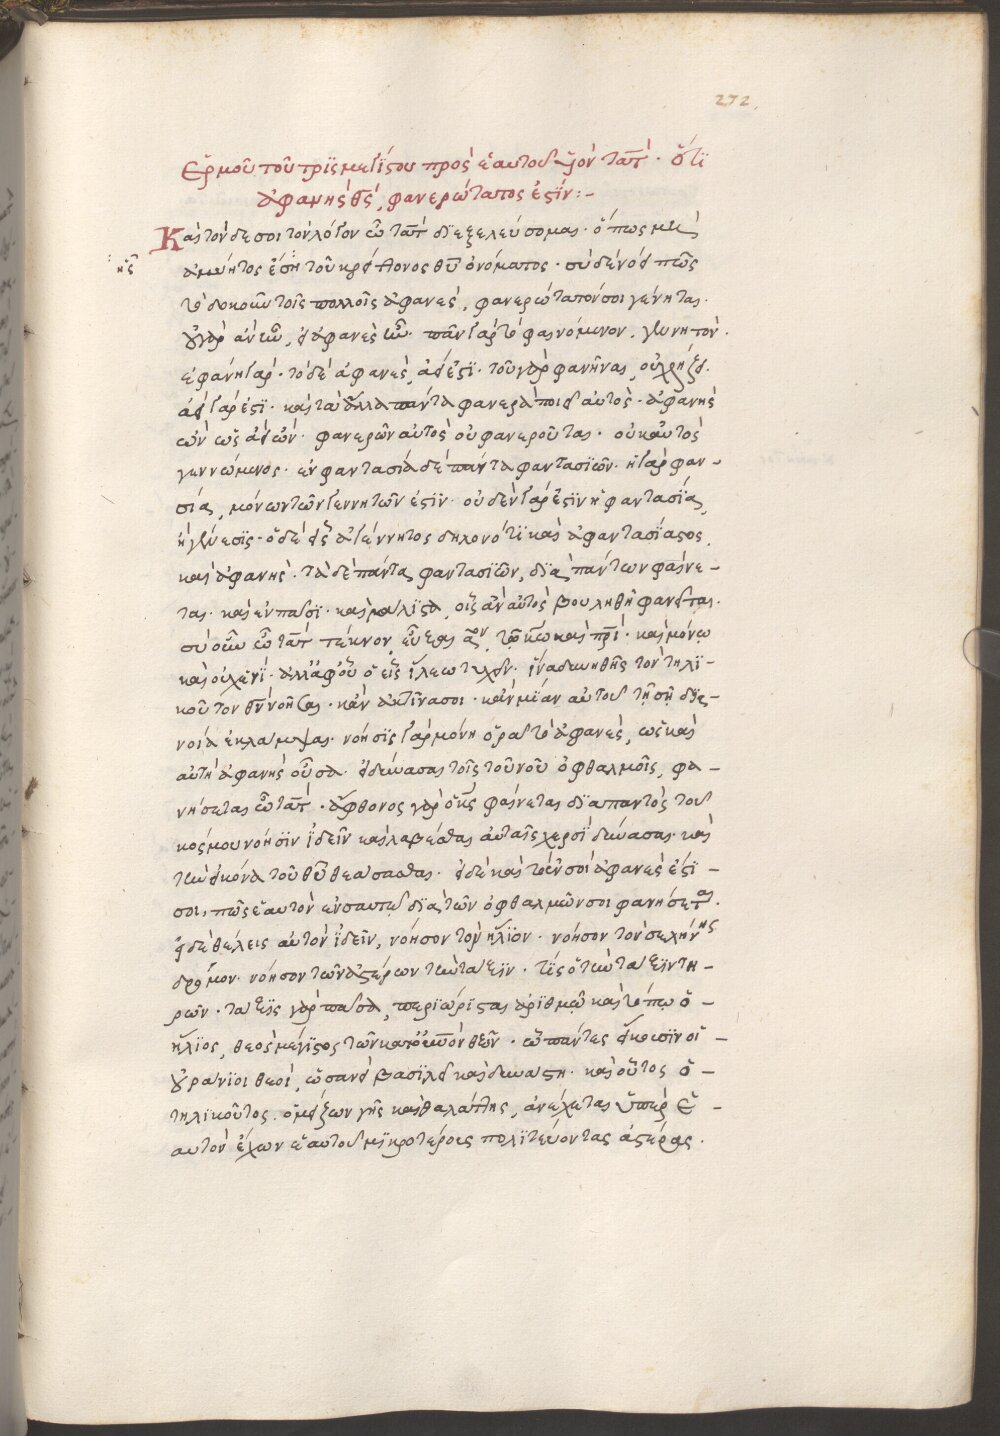 272
Ἑρμοῦ τοῦ τρισμεγίστου πρὸς ἑαυτοῦ υἱὸν τάτ. ὅτι
ἀφανὴς θς, φανερώτατος ἐστίν:-
Καὶ τόνδε σοι τὸν λόγον ὦ τάτ διεξελεύσομαι. ὅπως μὴ
ἀμύητος ἔση τοῦ κρείττονος θυ ὀνόματος. σὺ δὲ νόει πῶς
τὸ δοκοῦν τοῖς πολλοῖς ἀφανές, φανερώτατόν σοι γένηται.
οὐ γὰρ ἂν ἦν, εἰ ἀφανὲς ἦν. πᾶν γὰρ τὸ φαινόμενον, γεννητόν.
ἐφάνη γάρ. τὸ δὲ ἀφανές, ἀεί ἐστι. τοῦ γὰρ φανῆναι, οὐ χρήζει.
ἀεὶ γάρ ἐστι. καὶ τὰ ἄλλα πάντα φανερὰ ποιεῖ αὐτὸς. ἀφανὴς
ὢν ὡς ἀεὶ ὤν. φανερῶν αὐτὸς οὐ φανεροῦται. οὐκ αὐτὸς
γεννώμενος. ἐν φαντασία δὲ πάντα φαντασιῶν. ἡ γὰρ φαν-
σία, μόνων τῶν γεννητῶν ἐστίν. οὐδὲν γάρ ἐστιν ἡ φαντασία,
ἢ γένεσις. ὁ δὲ εἷς ἀγέννητος δηλονότι καὶ ἀφαντασίαστος,
καὶ ἀφανής. τὰ δὲ πάντα φαντασιῶν, διὰ πάντων φαίνε-
ται. καὶ ἐν πᾶσι. καὶ μάλιστα, οἷς ἂν αὐτὸς βουληθῆ φανῆναι.
σὺ οὖν ὦ τάτ τέκνον, εὖξαι
καὶ μόνω
καὶ ἀλλ' ἀφ' οὗ ὁ εἷς ἵλεω τυχεῖν. ἵνα δυνηθῆς τὸν τηλι-
κοῦτον θν νοῆσαι. κἂν ἀκτῖνά σοι. κἂν μίαν αὐτοῦ τῇ σῇ δια-
νοία ἐκλάμψαι. νόησις γὰρ μόνη ὁρᾶ τὸ ἀφανές, ὡς καὶ
αὐτὴ ἀφανὴς οὖσα. εἰ δύνασαι τοῖς τοῦ νοῦ ὀφθαλμοῖς, φα-
νήσεται ὦ τάτ. ἄφθονος γὰρ ὁ κς φαίνεται διὰ παντὸς τοῦ
κόσμου νόησιν ἰδεῖν καὶ λαβέσθαι αὐταῖς χερσὶ δύνασαι. καὶ
τὴν εἰκόνα τοῦ θυ θεάσασθαι. εἰ δὲ καὶ τὸ ἐν σοὶ ἀφανές ἐστί
σοι, πῶς ἑαυτὸν ἐν σαυτῷ διὰ τῶν ὀφθαλμῶν σοι φανήσεται.
εἰ δὲ θέλεις αὐτὸν ἰδεῖν, νόησον τὸν ἥλιον. νόησον τὸν σελήνης
δρόμον. νόησον τῶν ἀστέρων τὴν τάξιν. τίς ὁ τὴν τάξιν τη-
ρῶν. τάξις γὰρ πᾶσα, περιώρισται ἀριθμῷ καὶ τόπῳ ὁ-
ἥλιος, θεὸς μέγιστος τῶν κατ' οὐρανὸν θεῶν. ᾧ πάντες εἴκουσιν οἱ
οὐράνιοι θεοί, ὡσανεὶ βασιλεῖ καὶ δυνάστη. καὶ οὗτος ὁ
τηλικοῦτος. ὁ μείζων γῆς καὶ θαλάττης, ἀνέχεται ὑπὲρ ἑ-
αυτὸν ἔχων ἑαυτοῦ μικροτέρους πολιτεύοντας ἀστέρας.